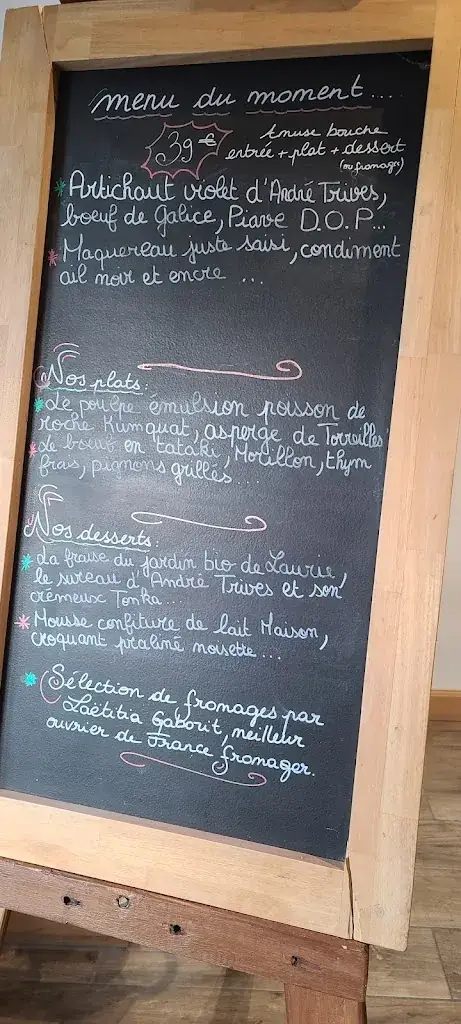 menu du moment ....
39 €
Amuse bouche
entrée + plat + dessert
(ou fromage)
* Artichaut violet d'André Trives,
boeuf de Galice, Piave D.O.P...
* Maquereau juste saisi, condiment
ail noir et encre ...
Nos plats:
* Le poulpe émulsion poisson de
roche Kumquat, asperge de Torreilles
* Le boeuf en tataki, Morillon, thym
frais, pignons grillés ....
Nos desserts:
* La fraise du jardin bio de Laurie,
le sureau d'André Trives et son
crémeux Tonka ...
* Mousse confiture de lait Maison,
croquant praliné noisette ...
* Sélection de fromages par
Laëtitia Gaborit, meilleur
ouvrier de France fromager.